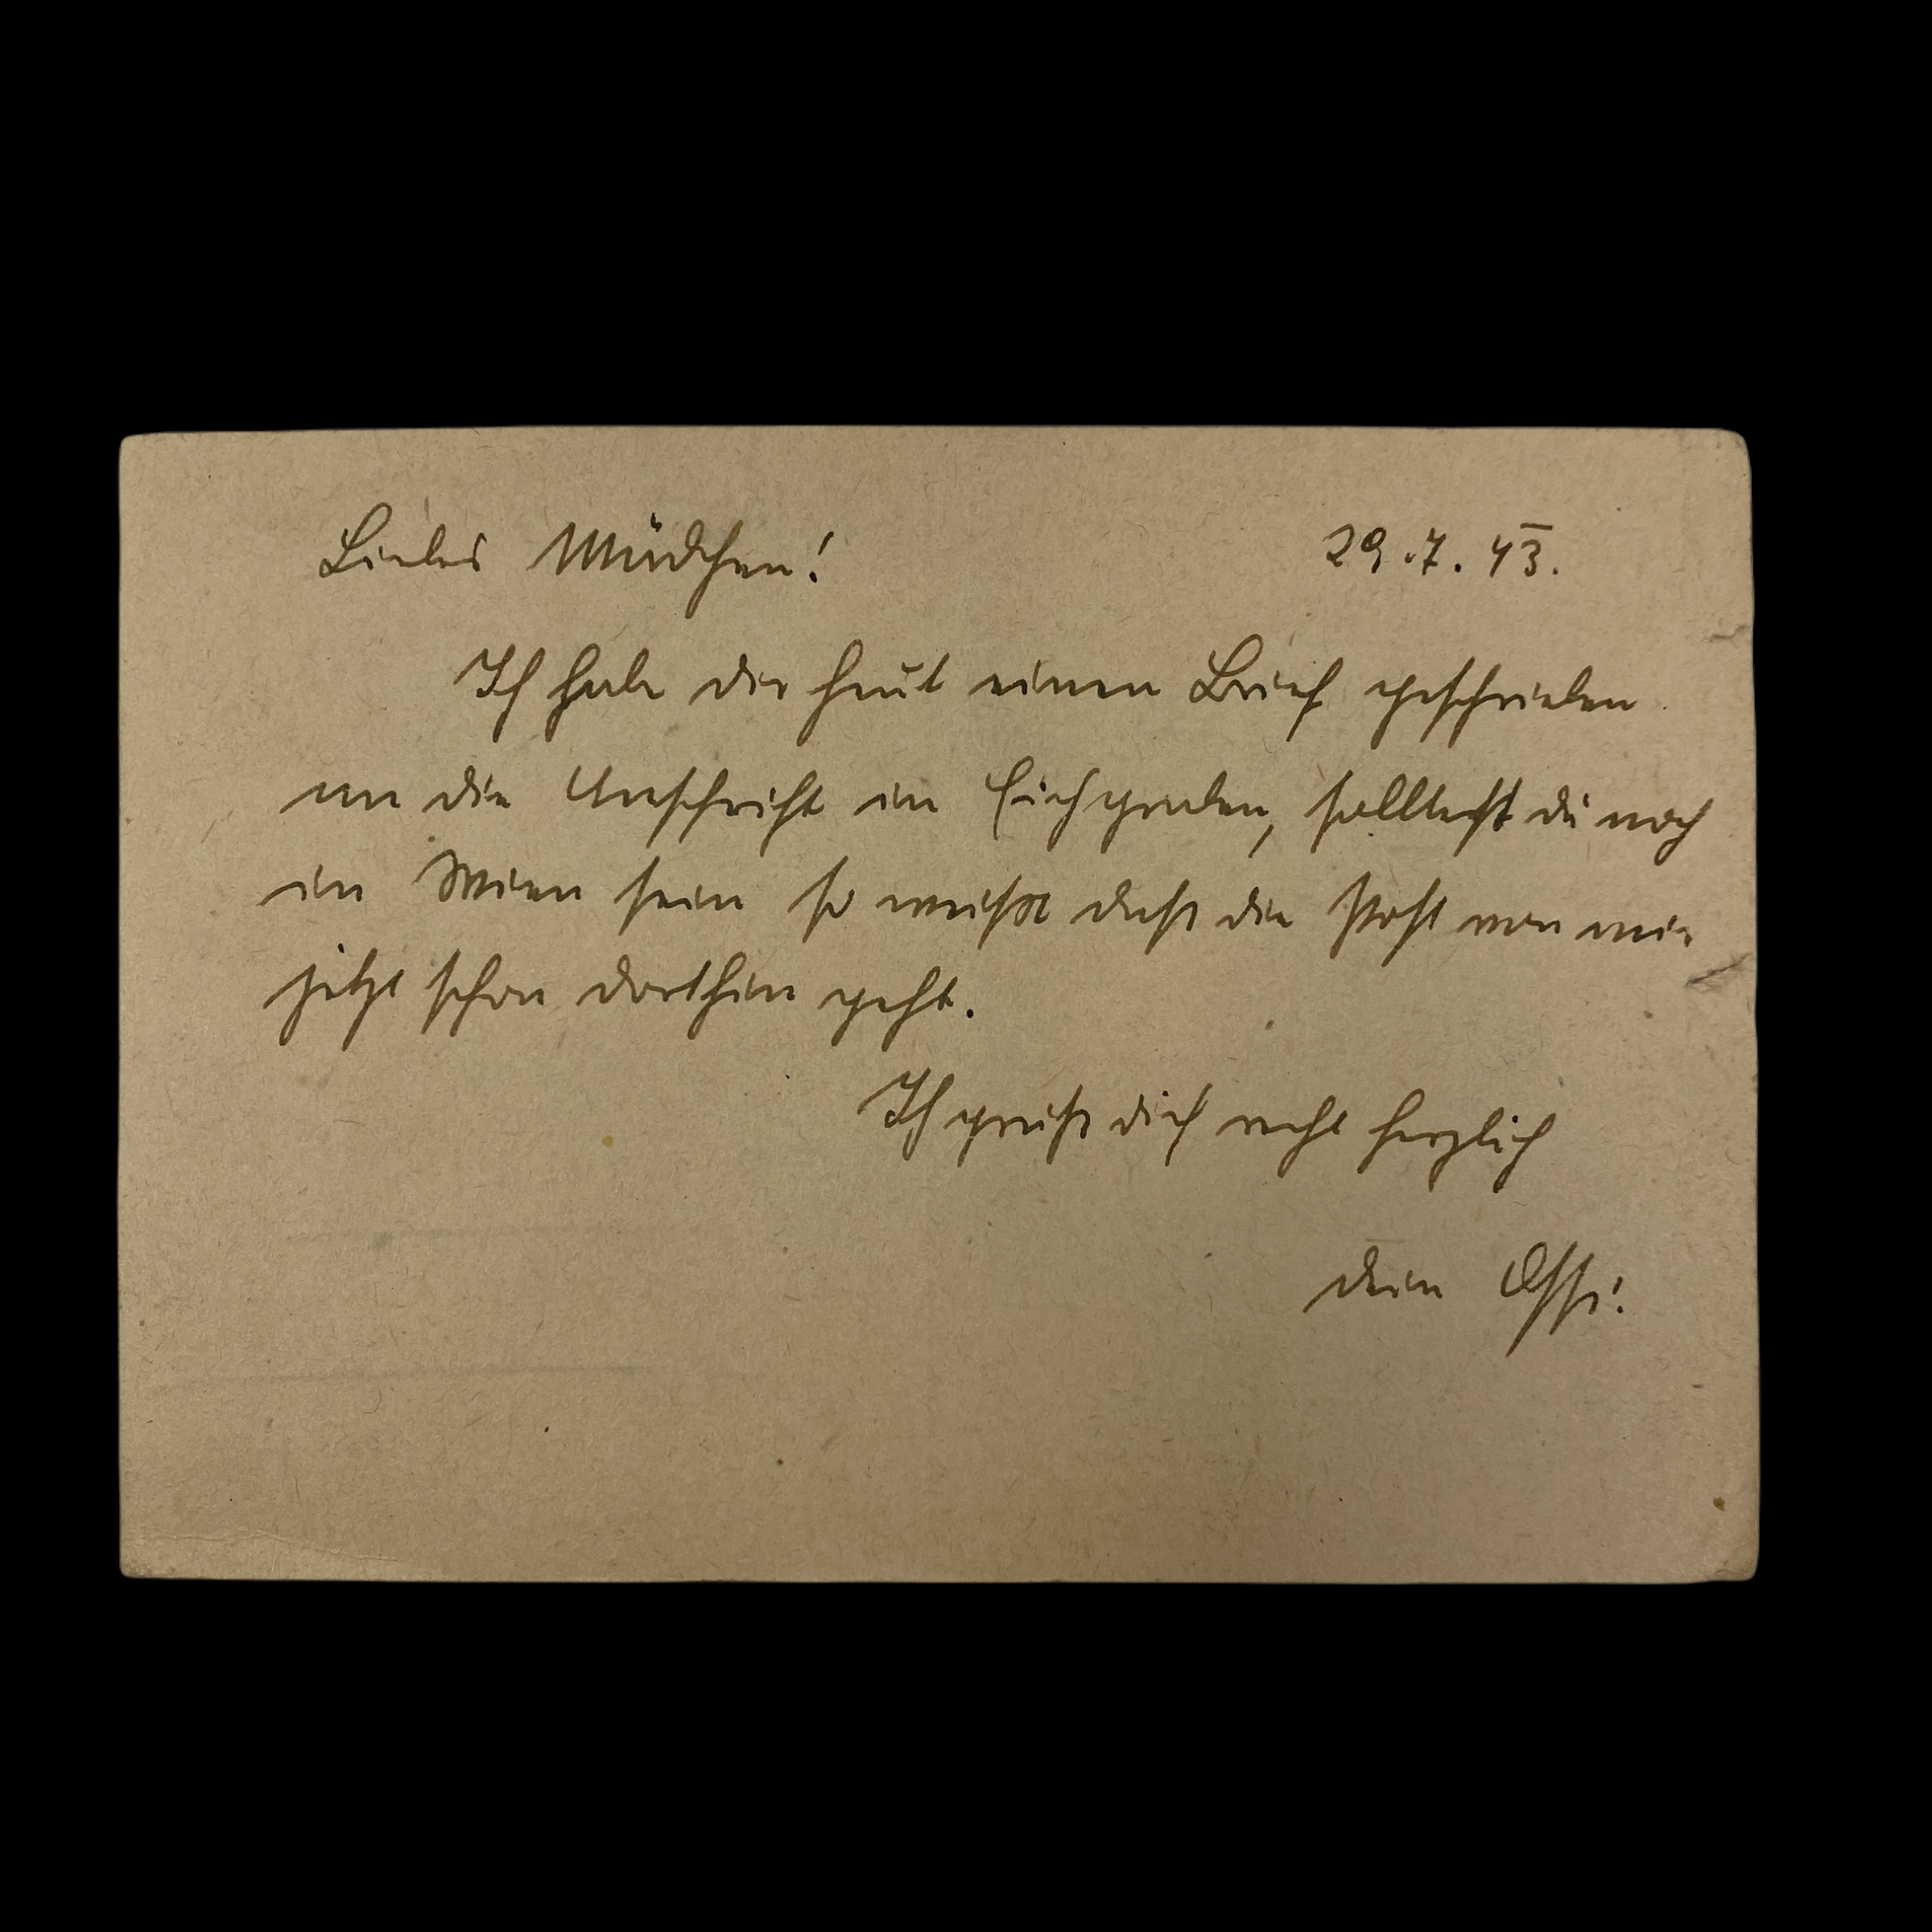 Liebes Mädchen! 29.7.43.
Ich habe dir heut einen Brief geschrieben
an die Anschrift in Eichgraben, solltest du noch
in Wien sein so weißt daß die Post von mir
jetzt schon dorthin geht.
Ich grüße dich recht herzlich
dein Ossi!